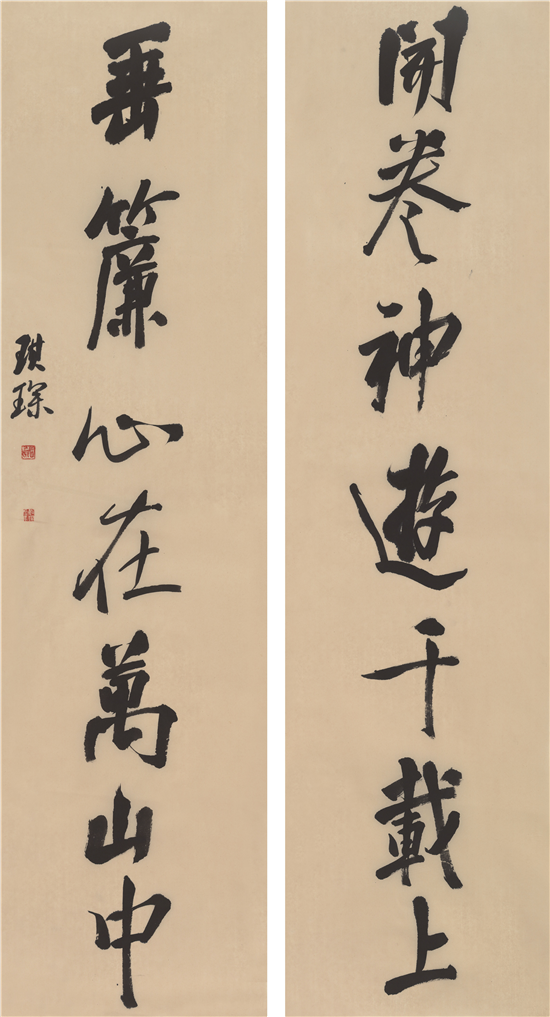 開卷神遊千載上
垂簾心在萬山中
琪琛